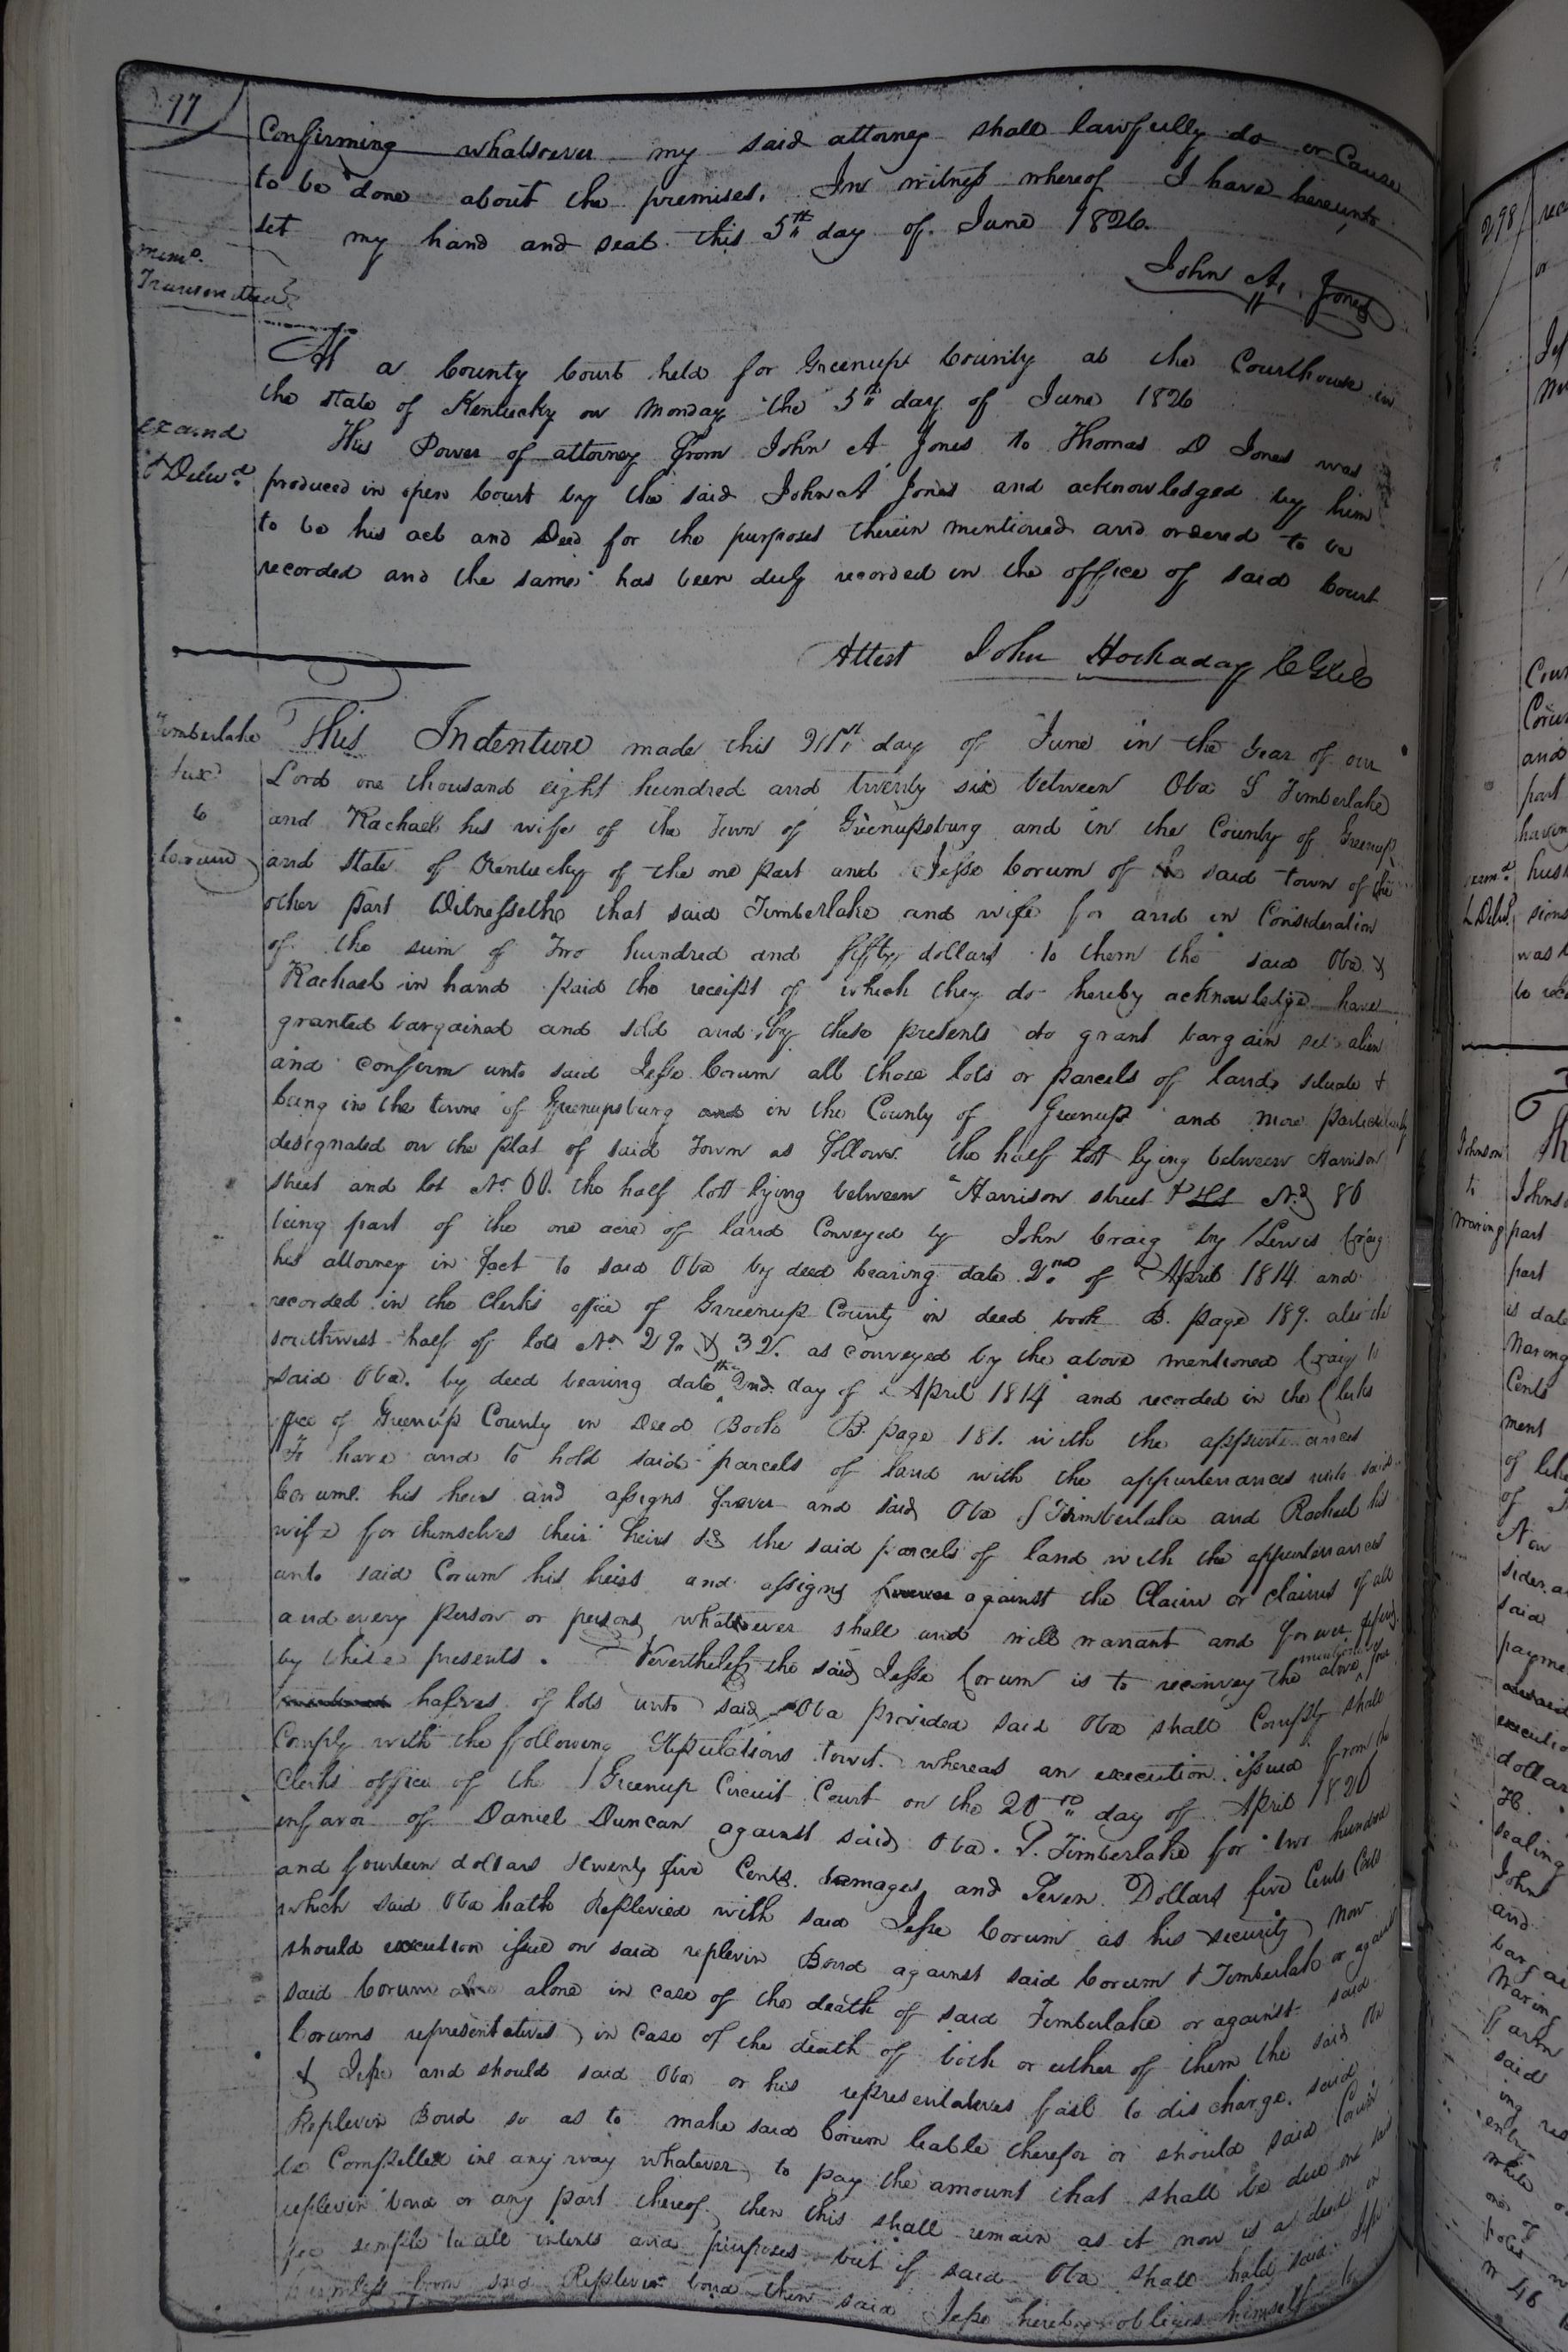 97
Confirming whatsoever my said attorney shall lawfully do or Cause
to be done about the premises. In witness whereof I have hereunto
set my hand and seal this 5th day of June 1826.
John A. Jones
At a County Court held for Greenup County at the Courthouse in
the state of Kentucky on Monday the 5th day of June 1826
Examd
& Delivd
This Power of attorney from John A Jones to Thomas D Jones was
produced in open Court by the said John A Jones and acknowledged by him
to be his act and Deed for the purposes therein mentioned and ordered to be
recorded and the same has been duly recorded in the office of said Court
Attest John Hockaday CGCC
Timberlake
&ux
to
Corum
This Indenture made this 21st day of June in the Year of our
Lord one thousand eight hundred and twenty six between Oba S Timberlake
and Rachael his wife of the Town of Greenupsburg and in the County of Greenup
and State of Kentucky of the one part and Jesse Corum of said town of the
other part Witnesseth that said Timberlake and wife for and in Consideration
of the sum of Two hundred and fifty dollars to them the said Oba &
Rachael in hand paid the receipt of which they do hereby acknowledge have
granted bargained and sold and by these presents do grant bargain sel alien
and confirm unto said Jesse Corum all those lots or parcels of land situate &
being in the towne of Greenupsburg and in the County of Greenup and more particularly
designated on the plat of said Town as follows the half lott lying between Harrison
street and lot No 60. the half lott lying between Harrison street & No 86
being part of the one acre of land Conveyed by John Craig by Lewis Craig
his attorney in fact to said Oba by deed bearing date 2nd of April 1814 and
recorded in the Clerks office of Greenup County in deed book B. page 189. also the
southwest half of lots No 29 & 32. as conveyed by the above mentioned Craig to
said Oba. by deed bearing date the 2nd day of April 1814 and recorded in the Clerks
office of Greenup County in Deed Book B. page 181. with the appurtenances
To have and to hold said parcels of land with the appurtenances unto said
Corum his heirs and assigns forever and said Oba S Timberlake and Rachael his
wife for themselves their heirs &c the said parcels of land with the appurtenances
unto said Corum his heirs and assigns forever against the Claim or claims of all
and every person or persons whatsoever shall and will warrant and forever defend
by these presents. Nevertheless the said Jesse Corum is to reconvey the above mentioned four
halfves of lots unto said Oba provided said Oba shall Comply shall
Comply with the following Stipulations towit. whereas an execution issued from the
Clerks office of the Greenup Circuit Court on the 20th day of April 1826
infavor of Daniel Duncan against said Oba. S. Timberlake for two hundred
and fourteen dollars twenty five Cents. damages and Seven Dollars five Cents Cost
which said Oba hath Replevied with said Jesse Corum as his security, Now
should execution issue on said replevin Bond against said Corum & Timberlake or against
said Corum alone in case of the death of said Timberlake or against said
Corums representatives, in case of the death of both or either of them the said Oba
& Jesse and should said Oba or his representatives fail to discharge said
Replevin Bond so as to make said Corum leable therefor or should said Corum
be Compelled in any way whatever, to pay the amount that shall be due on said
replevin bond or any part thereof, then this shall remain as it now is a deed in
fee simple to all intents and purposes, but if said Oba shall hold said Jesse
harmless from said Replevin bond then said Jesse hereby obliges himself to